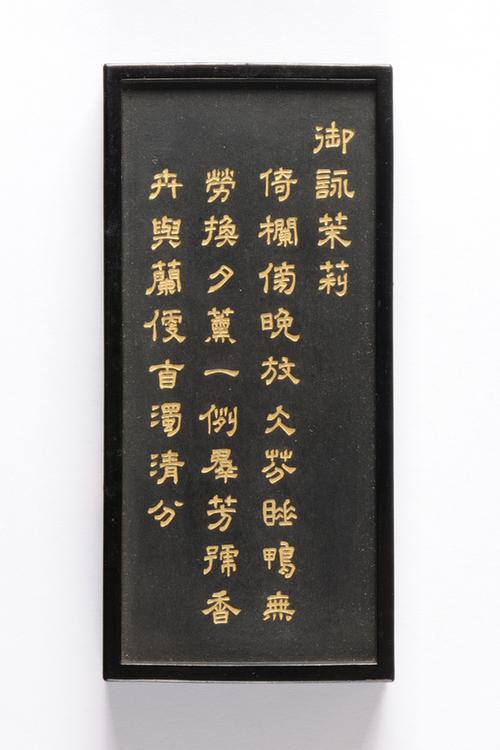 御詠茉莉
倚欄傍晚放芬睡鴨無
勞換夕薰一例羣芳號香
卉與蘭便濁清分